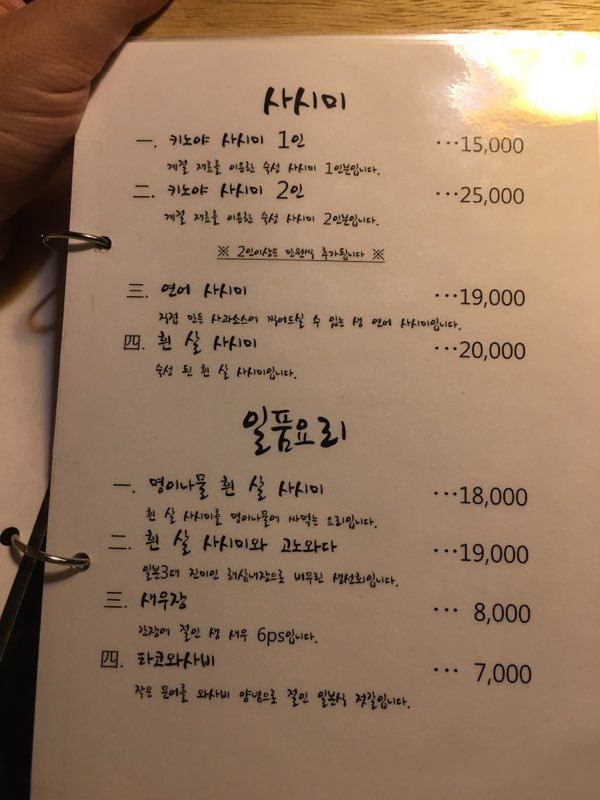 사시미
一. 키노야 사시미 1인 ···15,000
계절 재료를 이용한 숙성 사시미 1인분입니다.
二. 키노야 사시미 2인 ···25,000
계절 재료를 이용한 숙성 사시미 2인분입니다.
※ 2인이상은 만원씩 추가됩니다 ※
三. 연어 사시미 ···19,000
직접 만든 사과소스에 찍어드실 수 있는 생 연어 사시미입니다.
四. 흰 살 사시미 ···20,000
숙성 된 흰 살 사시미입니다.
일품요리
一. 명이나물 흰 살 사시미 ···18,000
흰 살 사시미를 명이나물에 싸먹는 요리입니다.
二. 흰 살 사시미와 고노와다 ···19,000
일본3대 진미인 해삼내장으로 버무린 생선회입니다.
三. 새우장 ··· 8,000
간장에 절인 생 새우 6ps입니다.
四. 타코와사비 ··· 7,000
작은 문어를 와사비 양념으로 절인 일본식 젓갈입니다.